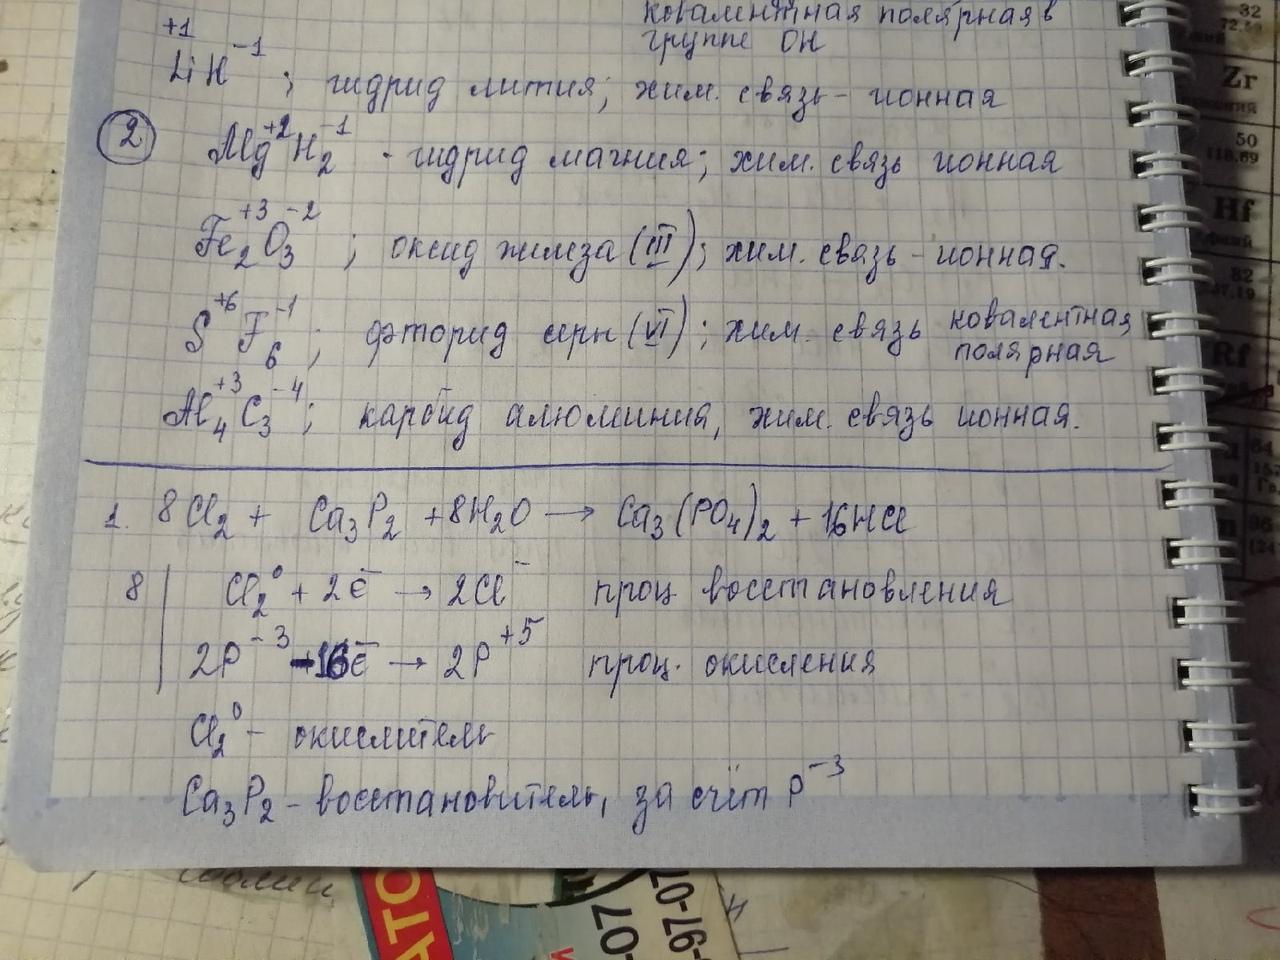 ковалентная полярная в
группе ОН
+1 -1
LiH ; гидрид лития; хим. связь - ионная
2 Mg⁺²H₂⁻¹ - гидрид магния; хим. связь ионная
Fe₂⁺³O₃⁻² ; оксид железа (III); хим. связь - ионная.
S⁺⁶F₆⁻¹ ; фторид серы (VI); хим. связь ковалентная
полярная
Al₄⁺³C₃⁻⁴ ; карбид алюминия, хим. связь ионная.
1. 8Cl₂ + Ca₃P₂ + 8H₂O → Ca₃(PO₄)₂ + 16HCl
8 | Cl₂⁰ + 2ē → 2Cl⁻ проц. восстановления
2P⁻³ - 16ē → 2P⁺⁵ проц. окисления
Cl₂⁰ - окислитель
Ca₃P₂ - восстановитель, за счёт P⁻³
32
72.59
Zr
50
118.69
Hf
82
207.19
Rf
АТО
-07
97-07